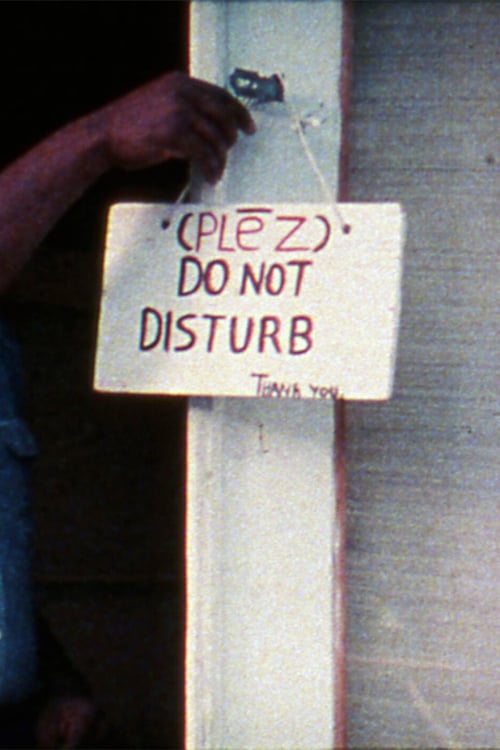 (PLēZ)
DO NOT
DISTURB
THANK YOU.